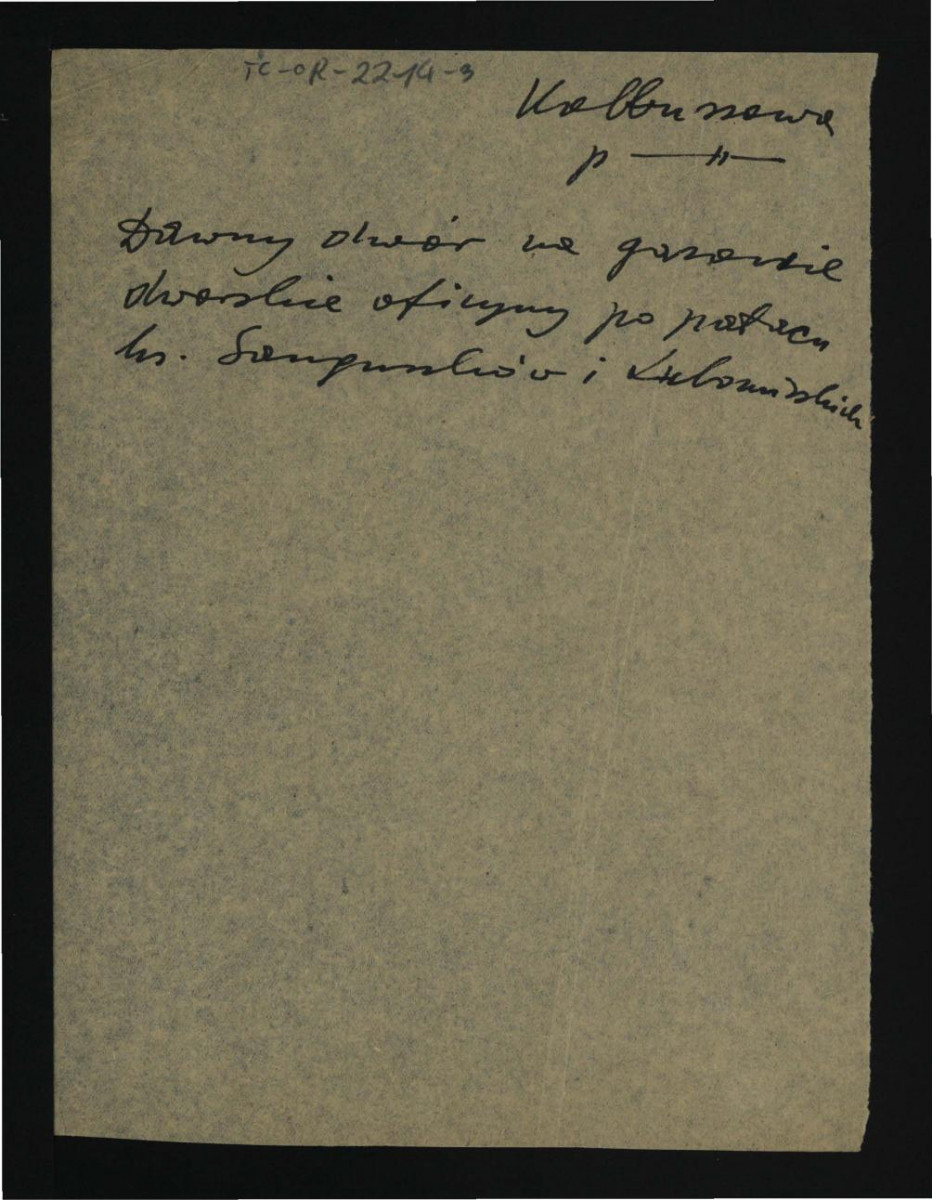 TC-OR-22-14-3
Kolbuszowa
p —〃—
Dawny dwór na
dworskie oficyny po pałacu
ks. Sanguszków i Lubomirskich